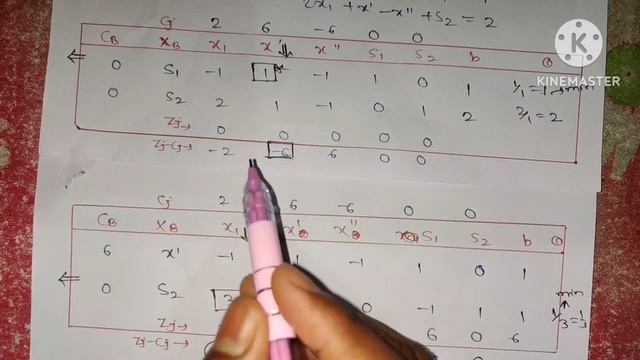 2x₁ + x' - x'' + S₂ = 2
Cj 2 6 -6 0 0
CB XB x₁ x' x'' S₁ S₂ b Θ
0 S₁ -1 1 -1 1 0 1 1/1 = 1 → min
KINEMASTER
0 S₂ 2 1 -1 0 1 2 2/1 = 2
Zj → 0 0 0 0 0
Zj-Cj → -2 -6 6 0 0
Cj 2 6 -6 0 0
CB XB x₁ x' x'' S₁ S₂ b Θ
6 x' -1 -1 1 0 1
min
0 S₂ 3 0 -1 1 1 1/3 = 1/3
Zj → 6 0 6
Zj-Cj →